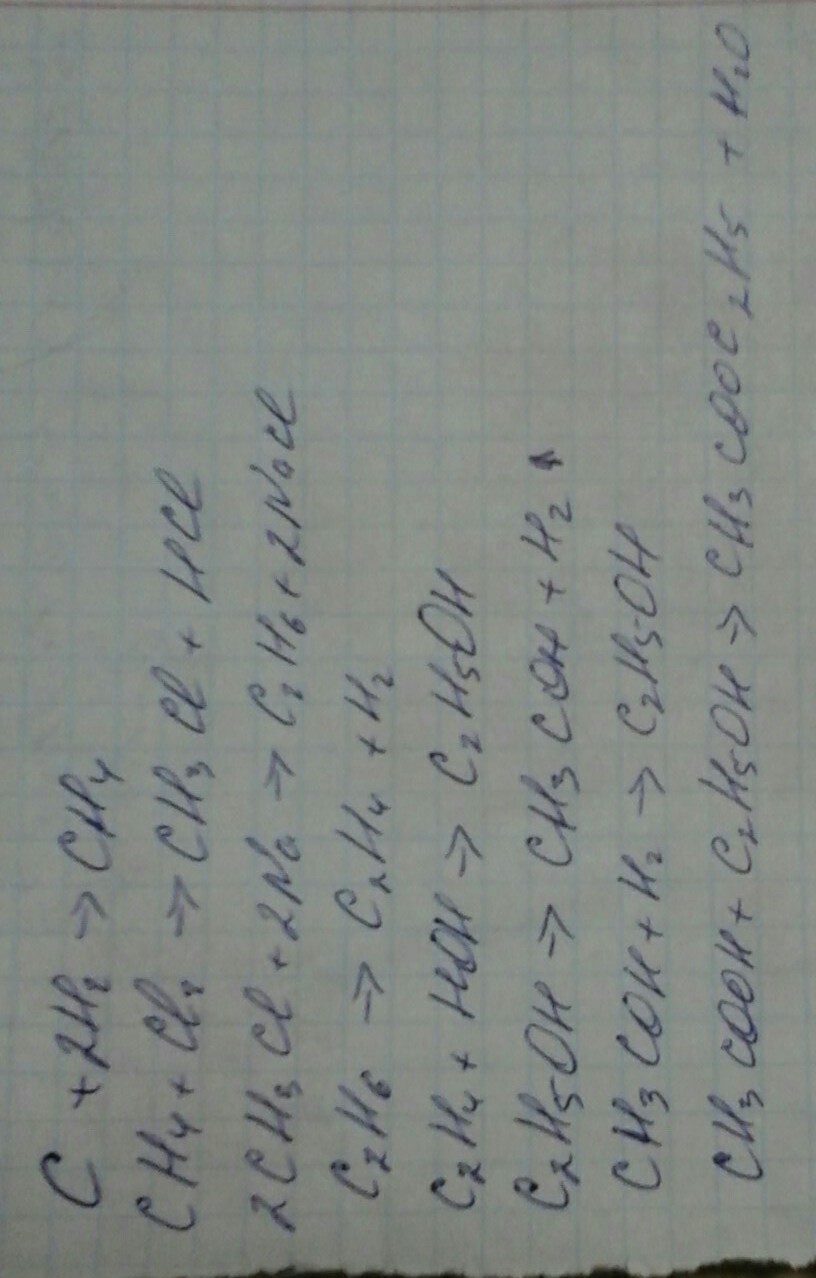 C + 2H₂ → CH₄
CH₄ + Cl₂ → CH₃Cl + HCl
2CH₃Cl + 2Na → C₂H₆ + 2NaCl
C₂H₆ → C₂H₄ + H₂
C₂H₄ + HOH → C₂H₅OH
C₂H₅OH → CH₃COH + H₂↑
CH₃COH + H₂ → C₂H₅OH
CH₃COOH + C₂H₅OH → CH₃COOC₂H₅ + H₂O